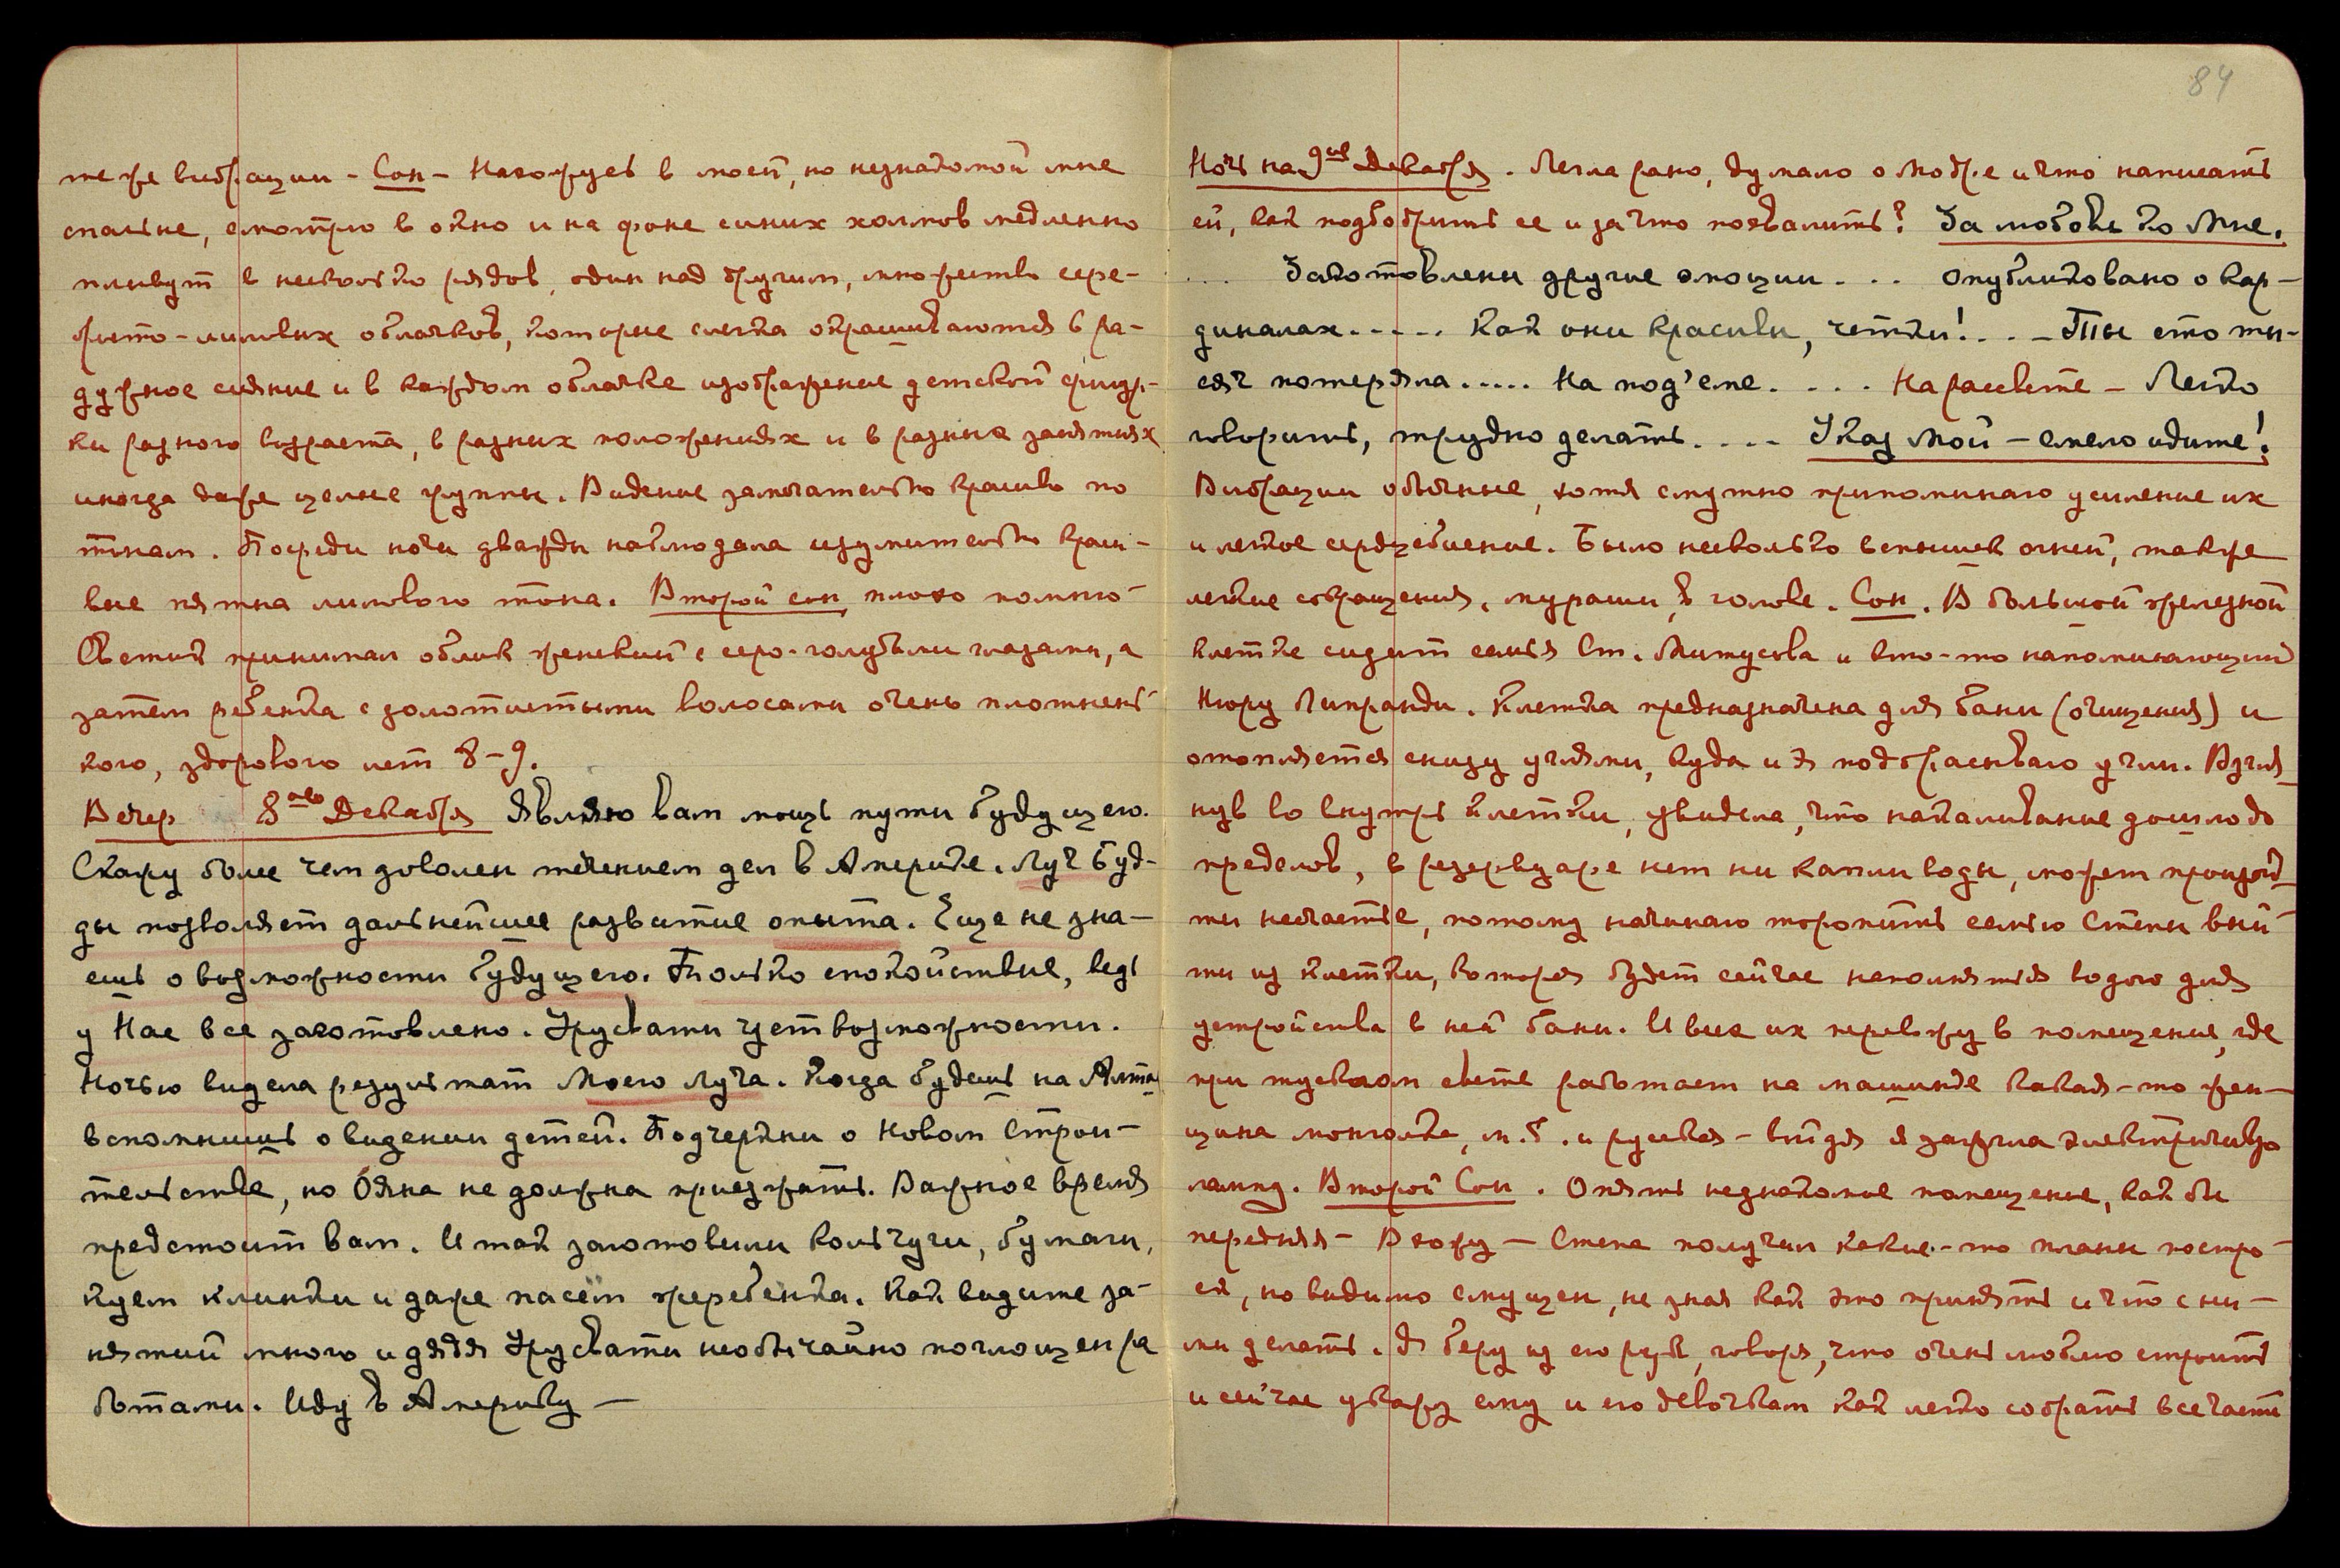 те же вибрации – Сон – Нахожусь в моей, но незнакомой мне
спальне, смотрю в окно и на фоне синих холмов медленно
плывут в несколько рядов, один над другим, множество сере-
бристо-лиловых облачков, которые слегка окрашиваются в ра-
дужное сияние и в каждом облачке изображение детской фигур-
ки разного возраста, в разных положениях и в разных занятиях
иногда даже целые группы. Видение замечательно красиво по
тонам. Посреди ночи дважды наблюдала изумительно краси-
вые пятна лилового тона. Второй сон плохо помню –
Светик принимал облик женский с серо-голубыми глазами, а
затем ребенка с золотистыми волосами очень плотнень-
кого, здорового лет 8–9.
Вечер 8ого Декабря Являю вам мощь пути будущего.
Скажу более чем доволен течением дел в Америке. Луч Буд-
ды позволяет дальнейшее развитие опыта. Еще не зна-
ешь о возможности будущего. Только спокойствие, ведь
у Нас все заготовлено. Урусвати чует возможности.
Ночью видела результат Моего Луча. Когда будешь на Алтае
вспомнишь о видении детей. Подчеркни о Новом Строи-
тельстве, но Ояна не должна приезжать. Важное время
предстоит вам. Итак заготовили кольчуги, бумаги,
куем клинки и даже пасем жеребенка. Как видите за-
нятий много и дядя Урусвати необычайно поглощен ра
ботами. Иду в Америку –
84
Ночь на 9ое Декабря. Легла рано, думало о Модре и что написать
ей, как подбодрить ее и за что похвалить? За любовь ко Мне.
... Заготовлены другие эмоции... Опубликовано о кар-
диналах..... Как они красивы, четки!... – Ты сто ты-
сяч потеряла..... На под'еме.... На рассвете – Легко
говорить, трудно делать.... Указ Мой – смело идите!
Вибрации обычные, хотя смутно припоминаю усиление их
и легкое сердцебиение. Было несколько вспышек огней, также
легкие сокращения, мураши в голове. Сон. В большой железной
клетке сидит семья Ст. Митусова и кто-то напоминающий
Нюру Липранди. Клетка предназначена для бани (очищения) и
отопляется снизу углями, куда и я подбрасываю угли. Взгля-
нув во внутрь клетки, увидела, что накаливание дошло до
пределов, в резервуаре нет ни капли воды, может произой-
ти несчастье, потому начинаю торопить семью Степы вый-
ти из клетки, которая будет сейчас наполняться водою для
устройства в ней бани. И всех их перевожу в помещение, где
при тусклом свете работает на машинке какая-то жен-
щина монголка, м.б. и русская – выйдя я зажгла электрическую
лампу. Второй Сон. Опять незнакомое помещение, как бы
передняя – Вхожу – Степа получил какие-то планы постро-
ек, но видимо смущен, не зная как это принять и что с ни-
ми делать. Я беру из его рук, говоря, что очень люблю строить
и сейчас укажу ему и его девочкам как легко собрать все части